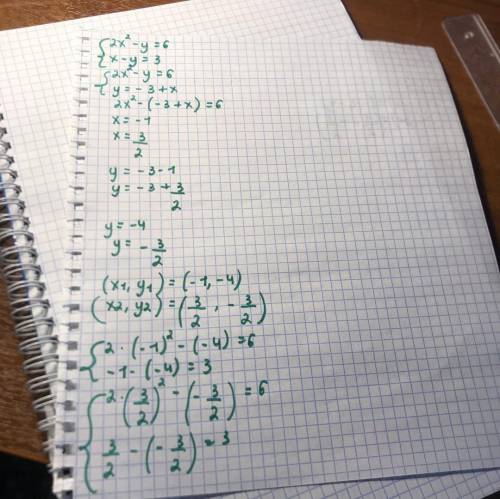 {2x² - y = 6
{x - y = 3
{2x² - y = 6
{y = - 3 + x
2x² - (-3 + x) = 6
x = -1
x = 3/2
y = -3 - 1
y = -3 + 3/2
y = -4
y = - 3/2
(x1, y1) = (-1, -4)
(x2, y2) = (3/2, - 3/2)
{2 · (-1)² - (-4) = 6
{-1 - (-4) = 3
{2 · (3/2)² - (- 3/2) = 6
{3/2 - (- 3/2) = 3